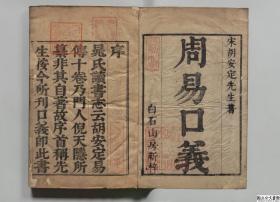 宋胡安定先生著
周易口義
白石山房新梓
序
晁氏讀書志云胡安定易
傳十卷乃門人倪天隱所
纂非其自著故序首稱先
生後今所刊口義即此書